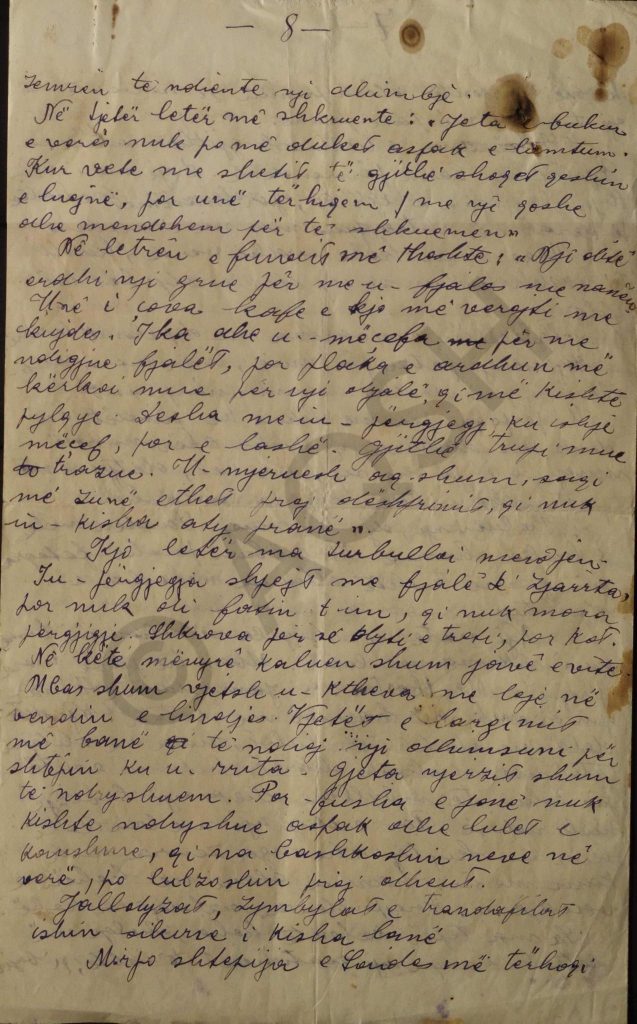 — 8 —
zemrën te ndiente nji dhimbjë.
Në tjetër letër më shkruente: „Jeta e bukur
e verës nuk po më duket aspak e lumtum.
Kur vete me shetit të gjithë shoqet qeshin
e luejnë, por unë tërhiqem me një qoshe
dhe mendohem për të shkuemen"
Në letrën e fundit më thoshte: „Nji ditë
erdhi nji grue për me u- fjalos me nanën
Unë i çova kafe e kjo më vërejti me
kujdes. Ika dhe u- mëcefa për me
ndigjue fjalët, por plaka e ardhun më
kërkoi mue për nji djalë, qi më kishte
pëlqye. Desha me iu- përgjegj ku ishje
mëcef, por e lashë. Gjithë trupi mue
trazue. U- nxeruesh aq shum, saqi
më zunë ethet prej dëshprimit, qi nuk
iu- kisha aty pranë".
Kjo letër ma turbulloi mendjen.
Iu- përgjegja shpejt me fjalë të zjarrta,
por nuk di fatin t-im, qi nuk mora
përgjigje. Shkrova për së dyti e treti, por kot.
Në këtë mënyrë kaluen shum javë e vite.
Mbas shum vjetsh u- ktheva me lejë në
vendin e lindjes. Vjetët e largimit
më banë të ndiej nji dhimsuni për
shtëpin ku u- rrita. Gjeta njerzit shum
të ndryshuem. Por fusha e jonë nuk
kishte ndryshue aspak dhe lulet e
kaushme, qi na bashkoshin neve në
verë, po lulzoshin prej dheut.
Jallëdyzat, zymbylat e trandafilat
ishin sikurse i kisha lanë
Mirpo shtepija e Sandes më tërhoqi